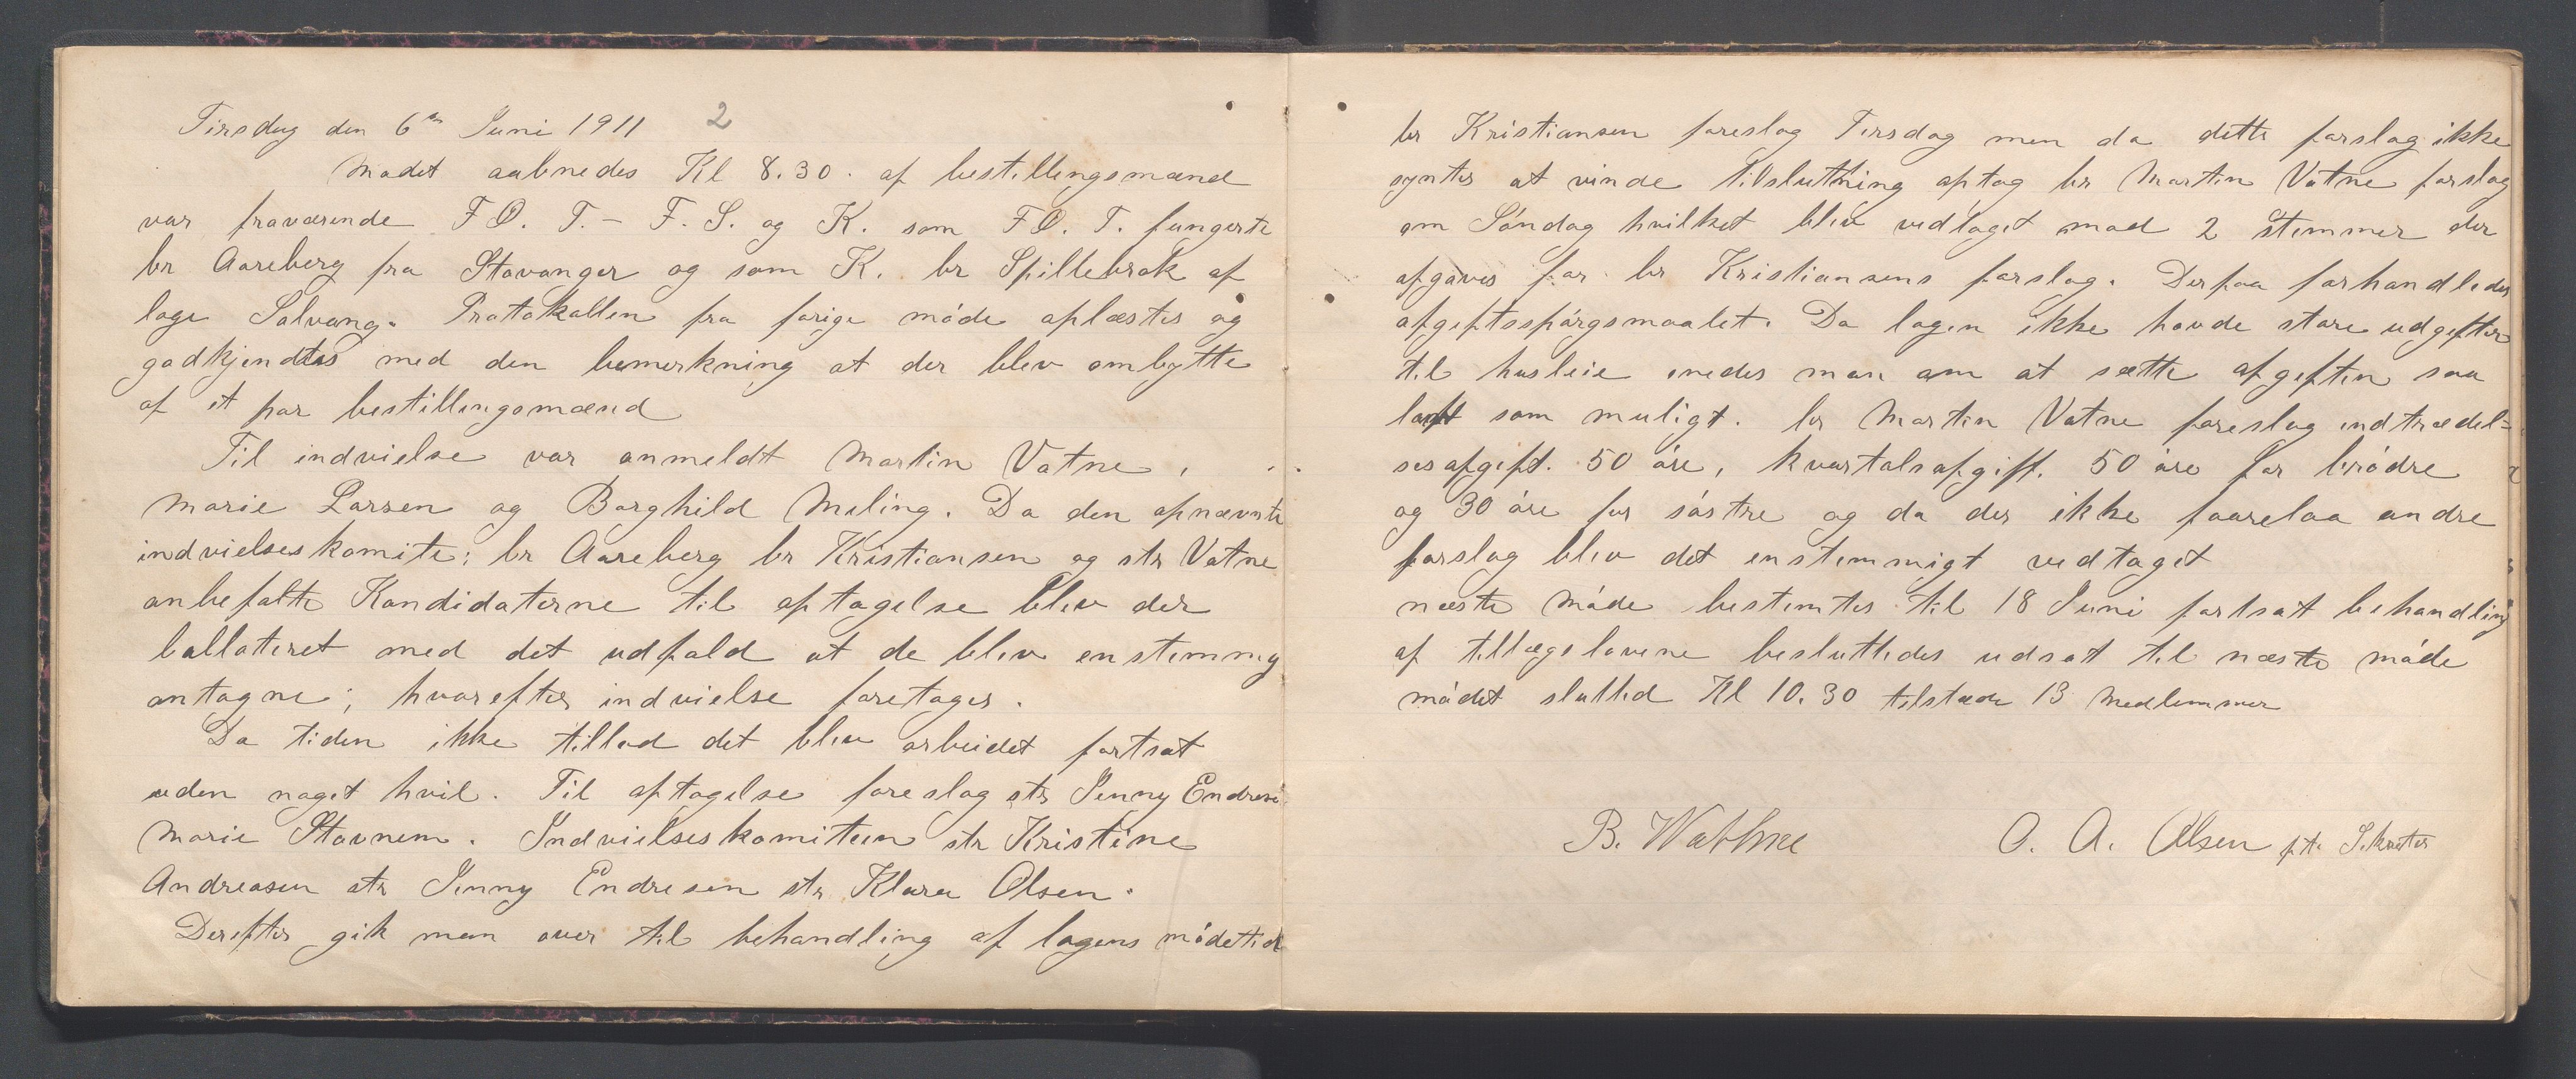 Tirsdag den 6te Juni 1911 2
Mødet aabnedes Kl 8.30. af bestillingsmænd
var fraværende F Ø. T. – F. S. og K. som F Ø. T. fungerte
br Aareberg fra Stavanger og som K. br Spillebrok af
loge Solvang. Protokollen fra forige møde oplæstes og
godkjendtes med den bemerkning at der blev ombytte
af et par bestillingsmænd
Til indvielse var anmeldt Martin Vatne,
Marie Larsen og Borghild Meling. Da den opnævnte
indvielseskomite: br Aareberg br Kristiansen og str Vatne
anbefalte Kandidaterne til optagelse blev der
balloteret med det udfald at de blev enstemmig
antagne; hvorefter indvielse foretoges.
Da tiden ikke tillod det blev arbeidet fortsat
uden noget hvil. Til optagelse foreslog str Jenny Endresen
Marie Stavnem. Indvielseskomiteen str Kristine
Andreasen str Jenny Endresen str Klara Olsen.
Derefter gik man over til behandling af logens mødetid
br Kristiansen foreslog Tirsdag men da dette forslag ikke
syntes at vinde tilslutning optog br Martin Vatne forslag
om Søndag hvilket blev vedtaget mod 2 stemmer der
afgaves for br Kristiansens forslag. Derpaa forhandledes
afgiftsspørgsmaalet. Da logen ikke havde store udgifter
til husleie enedes man om at sætte afgiften saa
lavt som muligt. br Martin Vatne foreslog indtrædel=
sesafgift. 50 øre, kvartalsafgift. 50 øre for brødre
og 30 øre for søstre og da der ikke foorelaa andre
forslag blev det enstemmigt vedtaget
næste møde bestemtes til 18 Juni fortsat behandling
af tillægslovene besluttedes udsat til næste møde
mødet slutted Kl 10.30 tilstede 13 Medlemmer
B. Wathne O. A. Olsen p.t. Sekretær